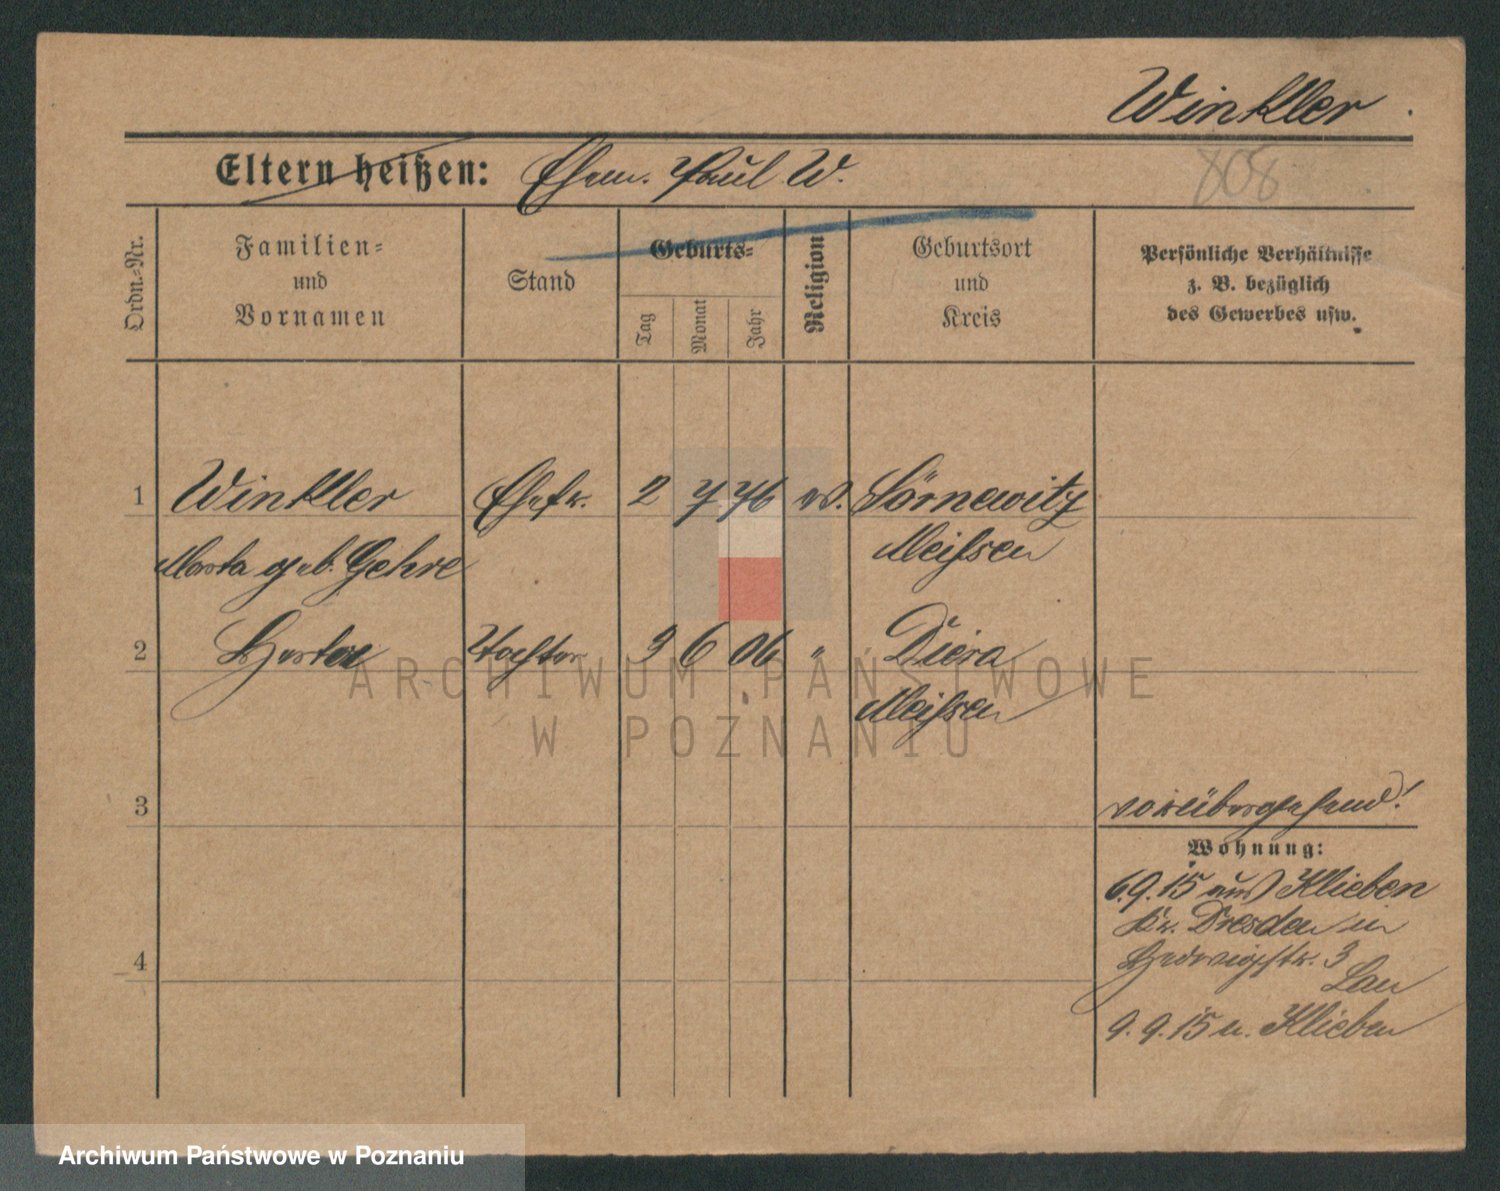 Winkler
Eltern heißen: Ehem. Paul W.
808
Ordn.-Nr.
Familien-
und
Vornamen
Stand
Geburts-
Tag
Monat
Jahr
Religion
Geburtsort
und
Kreis
Persönliche Verhältnisse
z. B. bezüglich
des Gewerbes usw.
1 Winkler Ehefr. 2 7 76 ev. Sörnewitz
Marta geb. Gehre Meißen
2 Herta Tochter 3 6 06 " Diera
Meißen
3
vorübergehend!
Wohnung:
6.9.15 aus Klieben
Kr. Dresden in
Hedwigstr. 3
Lau
4
9.9.15 n. Klieben
ARCHIWUM PAŃSTWOWE
W POZNANIU
Archiwum Państwowe w Poznaniu